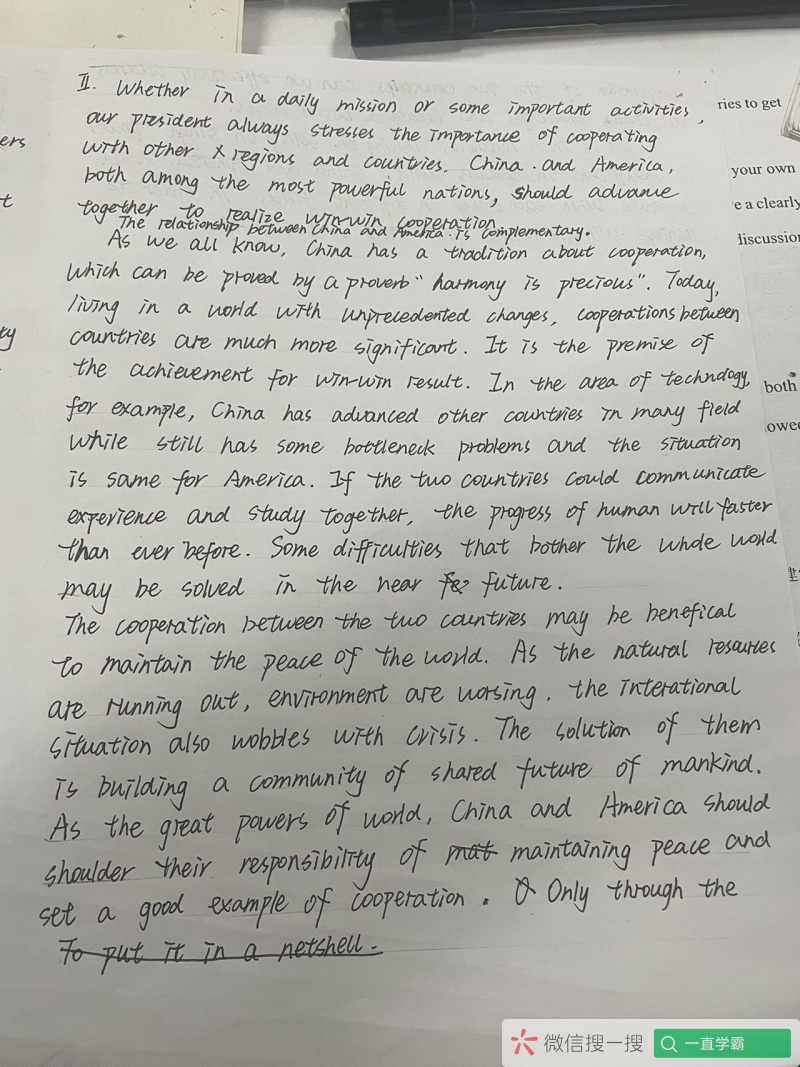 II. Whether in a daily mission or some important activities,
our president always stresses the importance of cooperating
with other regions and countries. China and America,
both among the most powerful nations, should advance
together to realize win-win cooperation.
The relationship between China and America is complementary.
As we all know, China has a tradition about cooperation,
which can be proved by a proverb "harmony is precious". Today,
living in a world with unprecedented changes, cooperations between
countries are much more significant. It is the premise of
the achievement for win-win result. In the area of technology,
for example, China has advanced other countries in many field
while still has some bottleneck problems and the situation
is same for America. If the two countries could communicate
experience and study together, the progress of human will faster
than ever before. Some difficulties that bother the whole world
may be solved in the near future.
The cooperation between the two countries may be benefical
to maintain the peace of the world. As the natural resources
are running out, environment are worsing, the interational
situation also wobbles with crisis. The solution of them
is building a community of shared future of mankind.
As the great powers of world, China and America should
shoulder their responsibility of maintaining peace and
set a good example of cooperation. Only through the
To put it in a netshell.
ries to get
your own
e a clearly
discussion
both
owed
ers
t
ty
微信搜一搜
一直学霸